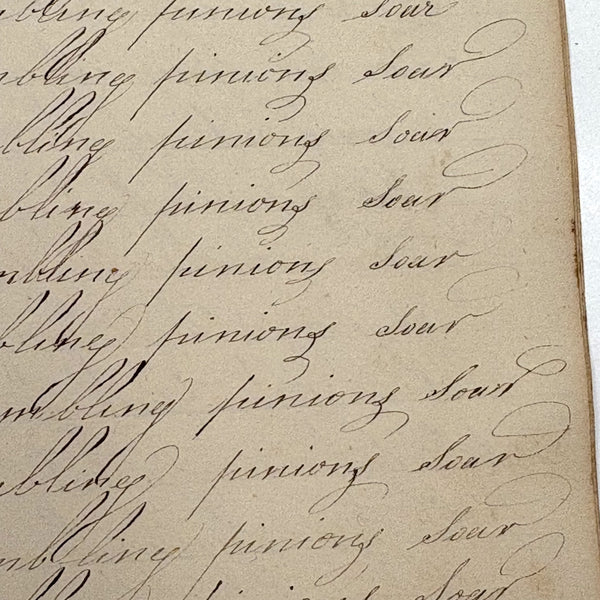 bling pinions soar
mbling pinions soar
bling pinions soar
bling pinions soar
mbling pinions soar
bling pinions soar
mbling pinions soar
mbling pinions soar
mbling pinions soar
soar